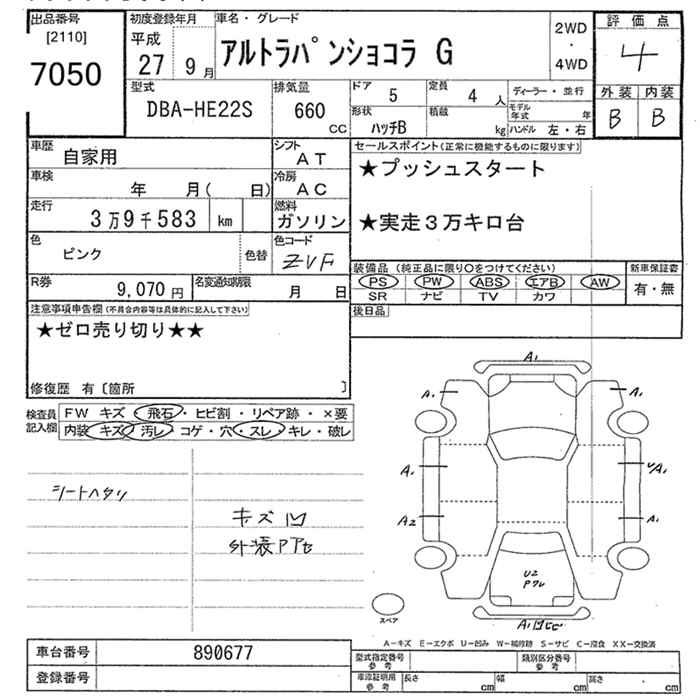 出品番号
[2110]
7050
初度登録年月
平成
27 9 月
車名・グレード
アルトラパンショコラ G
2WD
・
4WD
評価点
4
外装 内装
B B
型式
DBA-HE22S
排気量
660
CC
ドア
5
定員
4 人
形状
ハッチB
積載
kg
ディーラー・並行
モデル年式 年
ハンドル 左・右
車歴
自家用
シフト
AT
車検
年 月( 日)
冷房
AC
走行
3万9千583 km
燃料
ガソリン
色
ピンク
色替
色コード
ZVF
R券
9,070 円
名変通知期限
月 日
セールスポイント(正常に機能するものに限ります)
★プッシュスタート
★実走3万キロ台
装備品 (純正品に限り○をつけてください)
PS PW ABS エアB AW
SR ナビ TV カワ
新車保証書
有・無
後日品
注意事項申告欄(不具合内容等は具体的に記入して下さい)
★ゼロ売り切り★★
修復歴 有〔箇所 〕
検査員
記入欄
FW キズ・飛石・ヒビ割・リペア跡・×要
内装 キズ・汚レ・コゲ・穴・スレ・キレ・破レ
シートヘタリ
キズ凹
外装Pアセ
A1
A1
A1
A1
A2
U/A1
A1
U2
Pワレ
スペア
A-キズ E-エクボ U-凹み W-補修跡 S-サビ C-腐食 XX-交換済
車台番号
890677
登録番号
型式指定番号
参考
類別区分番号
参考
車庫証明用
参考
長さ cm
幅 cm
高さ cm